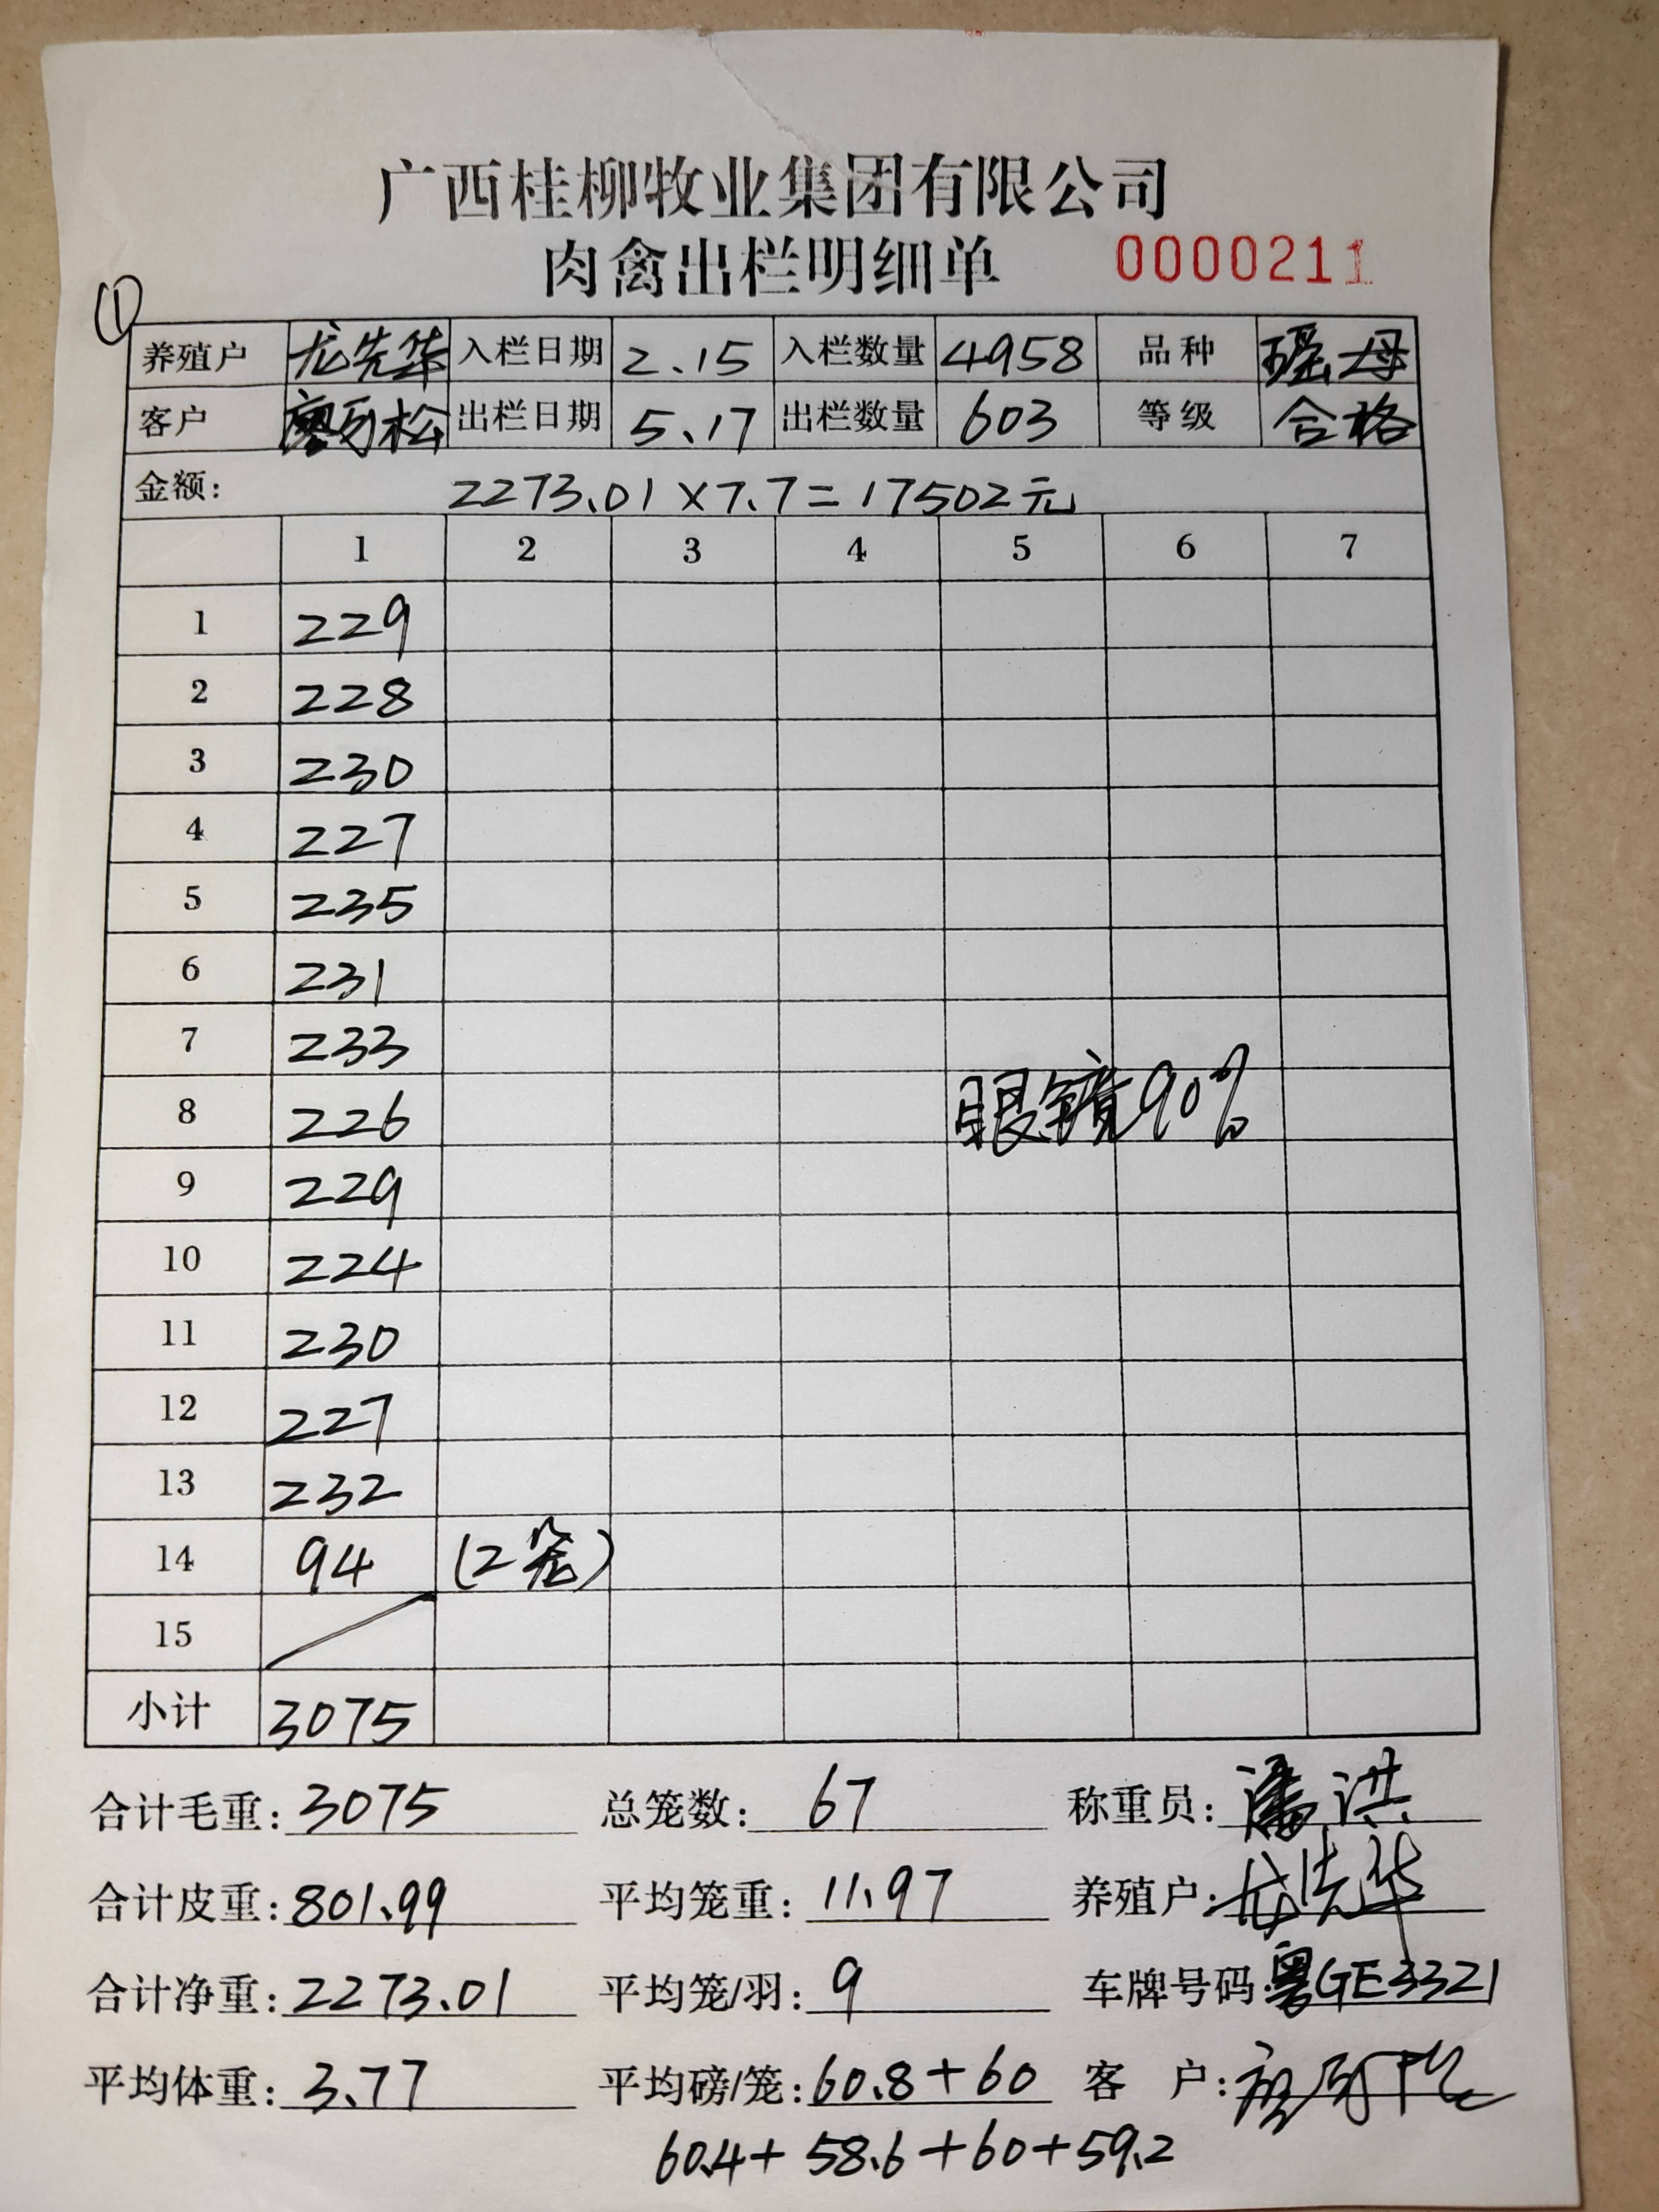 广西桂柳牧业集团有限公司
肉禽出栏明细单 0000211
①
养殖户 龙先华 入栏日期 2.15 入栏数量 4958 品种 瑶母
客户 廖 松 出栏日期 5.17 出栏数量 603 等级 合格
金额: 2273.01×7.7=17502元
1 2 3 4 5 6 7
1 229
2 228
3 230
4 227
5 235
6 231
7 233
8 226 眼镜90%
9 229
10 224
11 230
12 227
13 232
14 94 (2笼)
15
小计 3075
合计毛重: 3075 总笼数: 67 称重员: 潘洪
合计皮重: 801.99 平均笼重: 11.97 养殖户: 龙先华
合计净重: 2273.01 平均笼/羽: 9 车牌号码: 粤GE3321
平均体重: 3.77 平均磅/笼: 60.8+60 客 户:
60.4+58.6+60+59.2